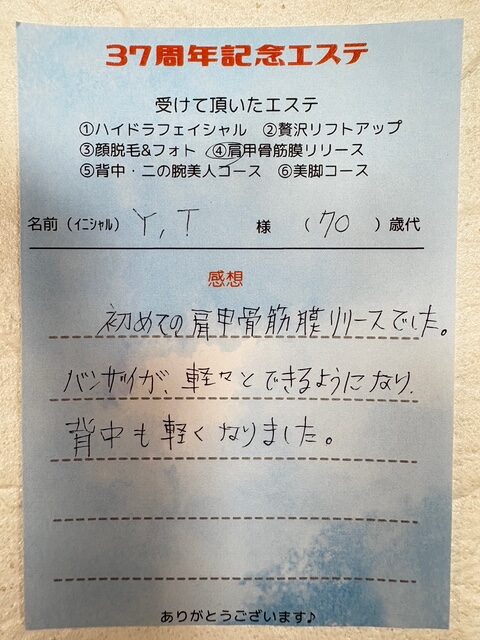 37周年記念エステ
受けて頂いたエステ
①ハイドラフェイシャル ②贅沢リフトアップ
③顔脱毛&フォト ④肩甲骨筋膜リリース
⑤背中・二の腕美人コース ⑥美脚コース
名前(ｲﾆｼｬﾙ) Y,T 様 (70)歳代
感想
初めての肩甲骨筋膜リリースでした。
バンザイが、軽々とできるようになり、
背中も軽くなりました。
ありがとうございます♪